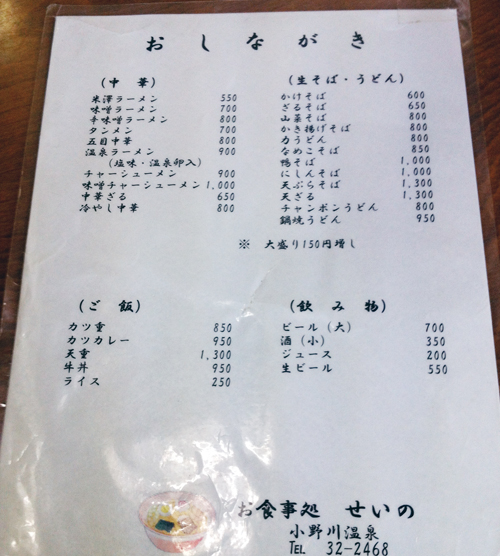 おしながき
(中華)
米澤ラーメン 550
味噌ラーメン 700
辛味噌ラーメン 800
タンメン 700
五目中華 800
温泉ラーメン 900
(塩味・温泉卵入)
チャーシューメン 900
味噌チャーシューメン 1,000
中華ざる 650
冷やし中華 800
(生そば・うどん)
かけそば 600
ざるそば 650
山菜そば 800
かき揚げそば 800
力うどん 800
なめこそば 850
鴨そば 1,000
にしんそば 1,000
天ぷらそば 1,300
天ざる 1,300
チャンポンうどん 800
鍋焼うどん 950
※ 大盛り150円増し
(ご飯)
カツ重 850
カツカレー 950
天重 1,300
牛丼 950
ライス 250
(飲み物)
ビール(大) 700
酒(小) 350
ジュース 200
生ビール 550
お食事処 せいの
小野川温泉
TEL 32-2468